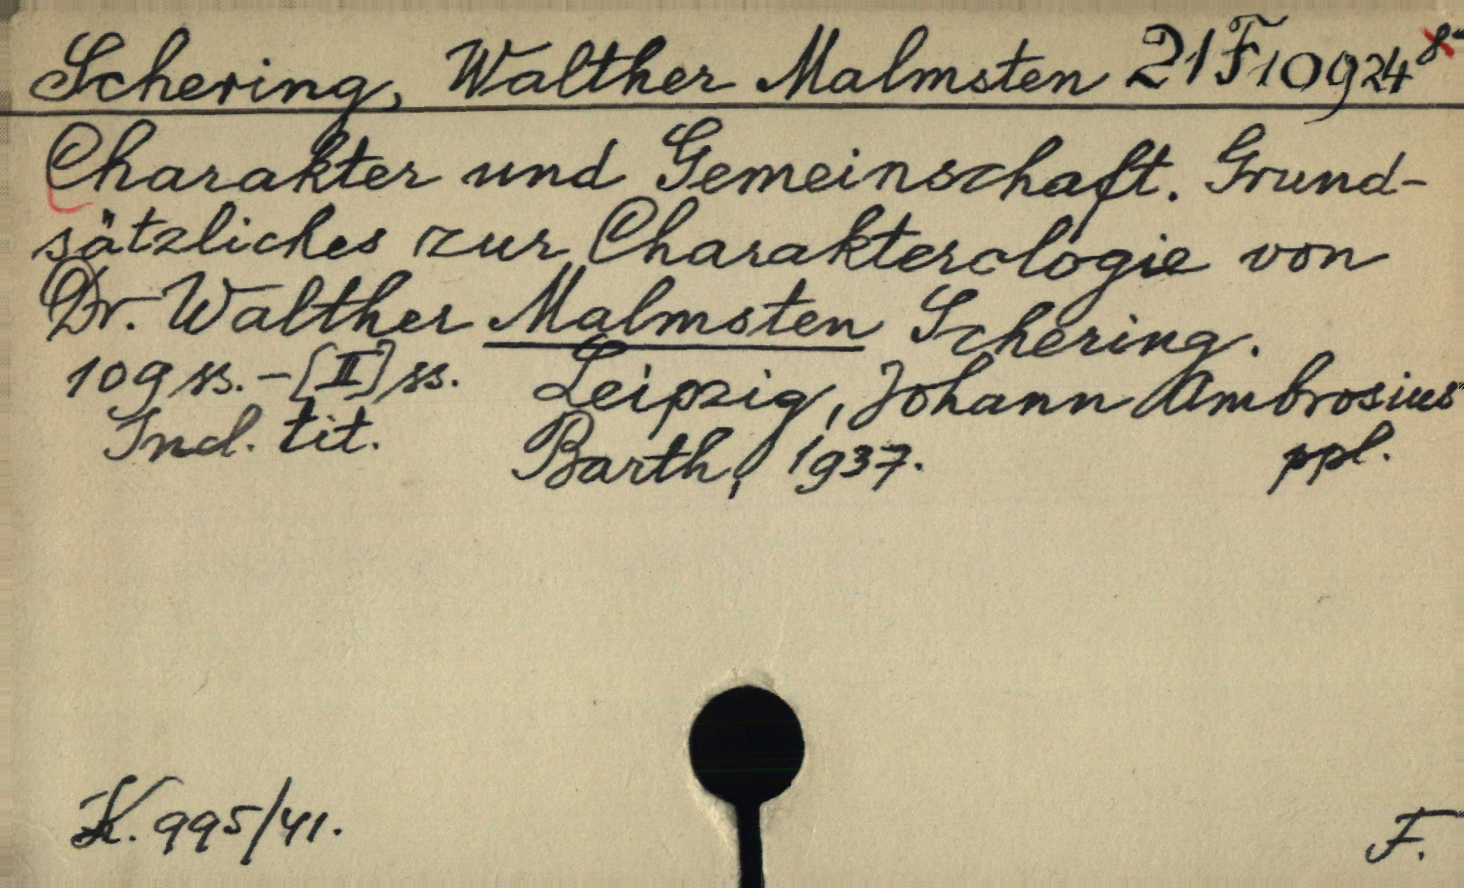 Schering, Walther Malmsten 21 F 10924 8°
Charakter und Gemeinschaft. Grund-
sätzliches zur Charakterologie von
Dr. Walther Malmsten Schering.
109 ss. - [II] ss. Leipzig, Johann Ambrosius
Incl. tit. Barth, 1937. ppl.
K. 995/41. F.